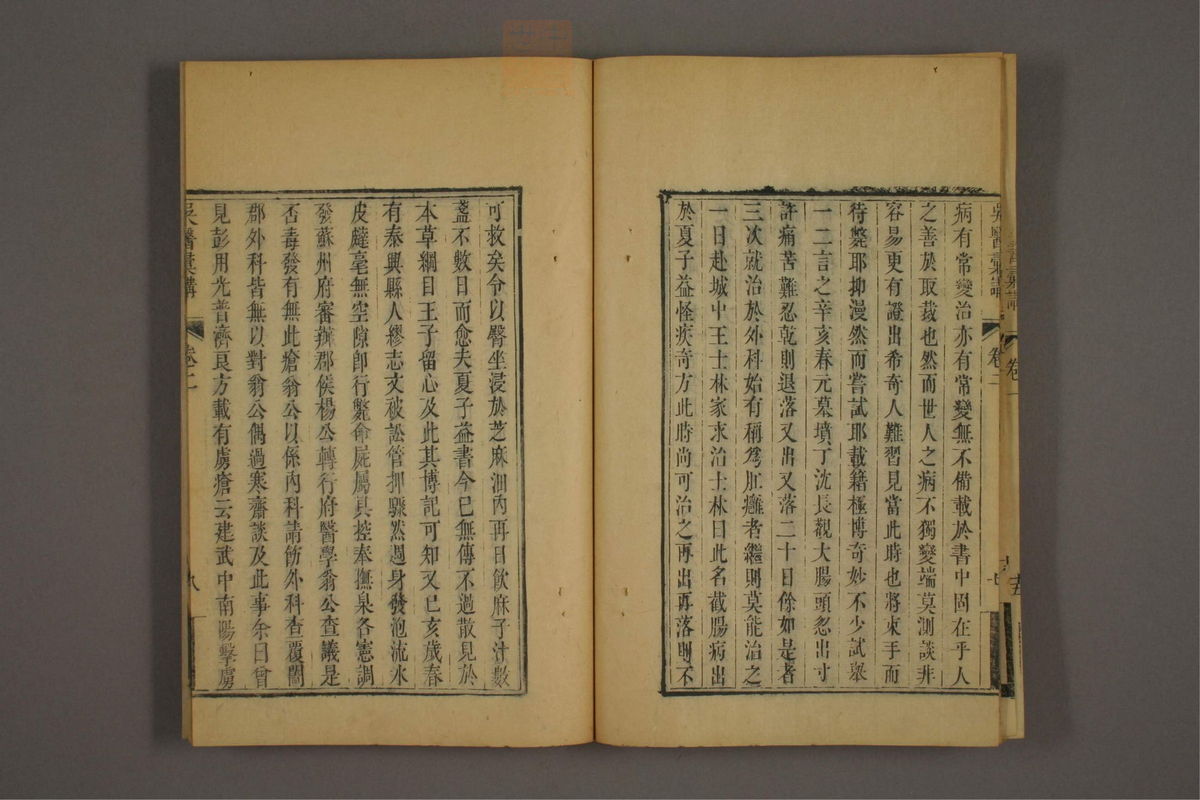 病有常變治亦有常變無不備載於書中固在乎人
之善於取裁也然而世人之病不獨變端莫測談非
容易更有證出希奇人難習見當此時也將束手而
待斃耶抑漫然而嘗試耶載籍極博奇妙不少試舉
一二言之辛亥春元墓墳丁沈長觀大腸頭忽出寸
許痛苦難忍乾則退落又出又落二十日餘如是者
三次就治於外科始有稱爲肛癰者繼則莫能治之
一日赴城中王士林家求治士林曰此名截腸病出
於夏子益怪疾奇方此時尚可治之再出再落則不
可救矣令以臀坐浸於芝麻油內再日飲麻子汁數
盞不數日而愈夫夏子益書今已無傳不過散見於
本草綱目王子留心及此其博記可知又己亥歲春
有泰興縣人繆志文被訟管押驟然週身發泡流水
皮纏毫無空隙卽行斃命屍屬具控奉撫臬各憲調
發蘇州府審辦郡侯楊公轉行府醫學翁公查議是
否毒發有無此瘡翁公以係內科請飭外科查覆闔
郡外科皆無以對翁公偶過寒齋談及此事余曰曾
見彭用光普濟良方載有虜瘡云建武中南陽擊虜
吳醫彙講
卷二
吳醫彙講
卷二
八